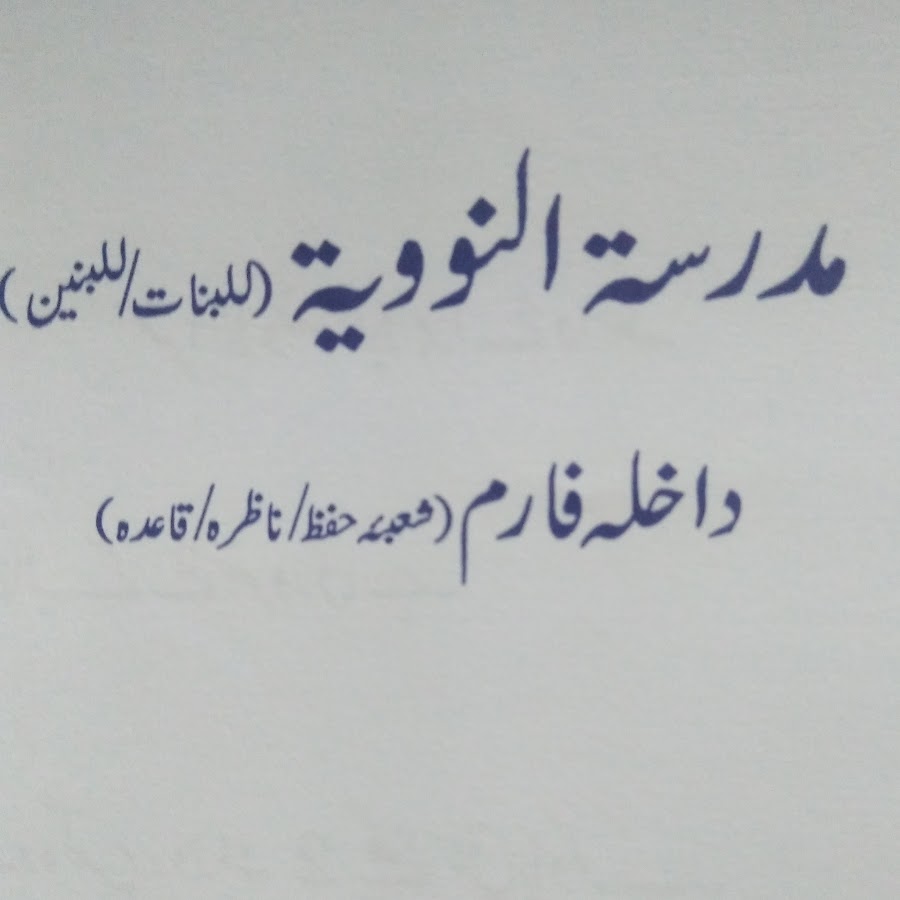 مدرسة النووية (للبنات/للبنين)
داخلہ فارم (شعبۂ حفظ/ناظرہ/قاعدہ)